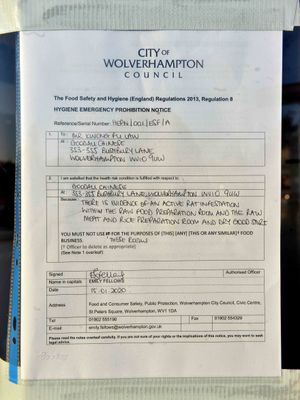 CITY OF
WOLVERHAMPTON
COUNCIL
The Food Safety and Hygiene (England) Regulations 2013, Regulation 8
HYGIENE EMERGENCY PROHIBITION NOTICE
Reference/Serial Number: HEPN/001/ESF/A
1. To: MR KWONG FU LAW
At: GOODALL CHINESE
353-355 BUSHBURY LANE
WOLVERHAMPTON WV10 9UW
2. I am satisfied that the health risk condition is fulfilled with respect to:
GOODALL CHINESE
At: 353-355 BUSHBURY LANE, WOLVERHAMPTON WV10 9UW
Because: THERE IS EVIDENCE OF AN ACTIVE RAT INFESTATION
WITHIN THE RAW FOOD PREPARATION ROOM AND THE RAW
MEAT AND RICE PREPARATION ROOM AND DRY GOOD STORE
YOU MUST NOT USE IT FOR THE PURPOSES OF [THIS] [ANY] [THIS OR ANY SIMILAR]† FOOD
BUSINESS. THESE ROOMS
[† Officer to delete as appropriate]
(See Note 1 overleaf)
Signed Authorised Officer
Name in capitals EMILY FELLOWS
Date 15.01.2020
Address Food and Consumer Safety, Public Protection, Wolverhampton City Council, Civic Centre,
St Peters Square, Wolverhampton, WV1 1DA
Tel 01902 Fax 01902 554329
E-mail emily.fellows@wolverhampton.gov.uk
Please read the notes overleaf carefully. If you are not sure of your rights or the implications of this notice, you may want to seek
legal advice.